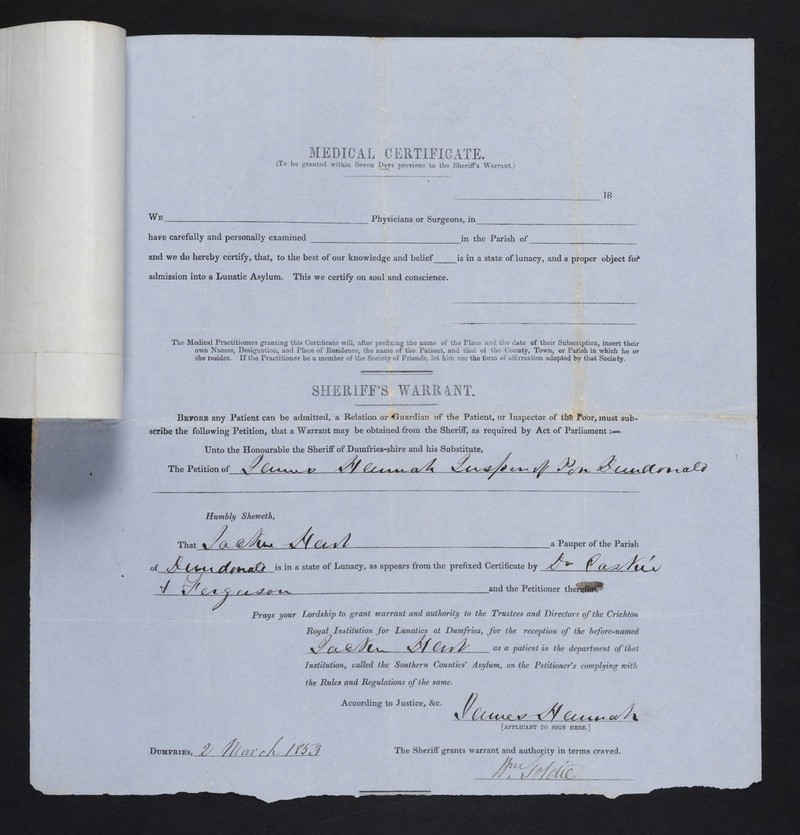 MEDICAL CERTIFICATE.
(To be granted within Seven Days previous to the Sheriff's Warrant.)
18
WE Physicians or Surgeons, in
have carefully and personally examined in the Parish of
and we do hereby certify, that, to the best of our knowledge and belief is in a state of lunacy, and a proper object for
admission into a Lunatic Asylum. This we certify on soul and conscience.
The Medical Practitioners granting this Certificate will, after prefixing the name of the Place and the date of their Subscription, insert their
own Names, Designation, and Place of Residence, the name of the Patient, and that of the County, Town, or Parish in which he or
she resides. If the Practitioner be a member of the Society of Friends, let him use the form of affirmation adopted by that Society.
SHERIFF'S WARRANT.
BEFORE any Patient can be admitted, a Relation or Guardian of the Patient, or Inspector of the Poor, must sub-
scribe the following Petition, that a Warrant may be obtained from the Sheriff, as required by Act of Parliament :—
Unto the Honourable the Sheriff of Dumfries-shire and his Substitute,
The Petition of James Hannah Inspr of Poor Dundonald
Humbly Sheweth,
That a Pauper of the Parish
of Dundonald is in a state of Lunacy, as appears from the prefixed Certificate by Dr
& Ferguson and the Petitioner therefore
Prays your Lordship to grant warrant and authority to the Trustees and Directors of the Crichton
Royal Institution for Lunatics at Dumfries, for the reception of the before-named
as a patient in the department of that
Institution, called the Southern Counties' Asylum, on the Petitioner's complying with
the Rules and Regulations of the same.
According to Justice, &c.
James Hannah
[APPLICANT TO SIGN HERE.]
DUMFRIES, 2 March 1853 The Sheriff grants warrant and authority in terms craved.
Wm Goldie